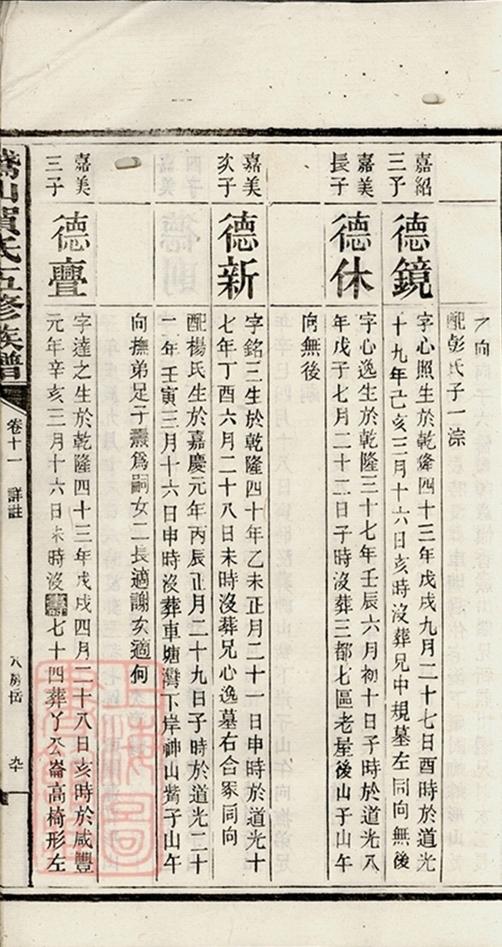 之向
配彭氏子一淙
嘉紹
三子
德鏡
字心照生於乾隆四十三年戊戌九月二十七日酉時於道光
十九年己亥三月十六日亥時沒葬兄中規墓左同向無後
嘉美
長子
德休
字心逸生於乾隆三十七年壬辰六月初十日子時於道光八
年戊子七月二十二日子時沒葬三都七區老屋後山子山午
向無後
嘉美
次子
德新
字銘三生於乾隆四十年乙未正月二十一日申時於道光十
七年丁酉六月二十八日未時沒葬兄心逸墓右合冢同向
配楊氏生於嘉慶元年丙辰正月二十九日子時於道光二十
二年壬寅三月十六日申時沒葬車塘灣下岸神山觜子山午
向撫弟足子燾爲嗣女二長適謝次適何
嘉美
三子
德亹
字達之生於乾隆四十三年戊戌四月二十八日亥時於咸豐
元年辛亥三月十六日未時沒壽七十四葬丫木崙高椅形左
山賀氏五修族譜
卷十一
詳註
房岳